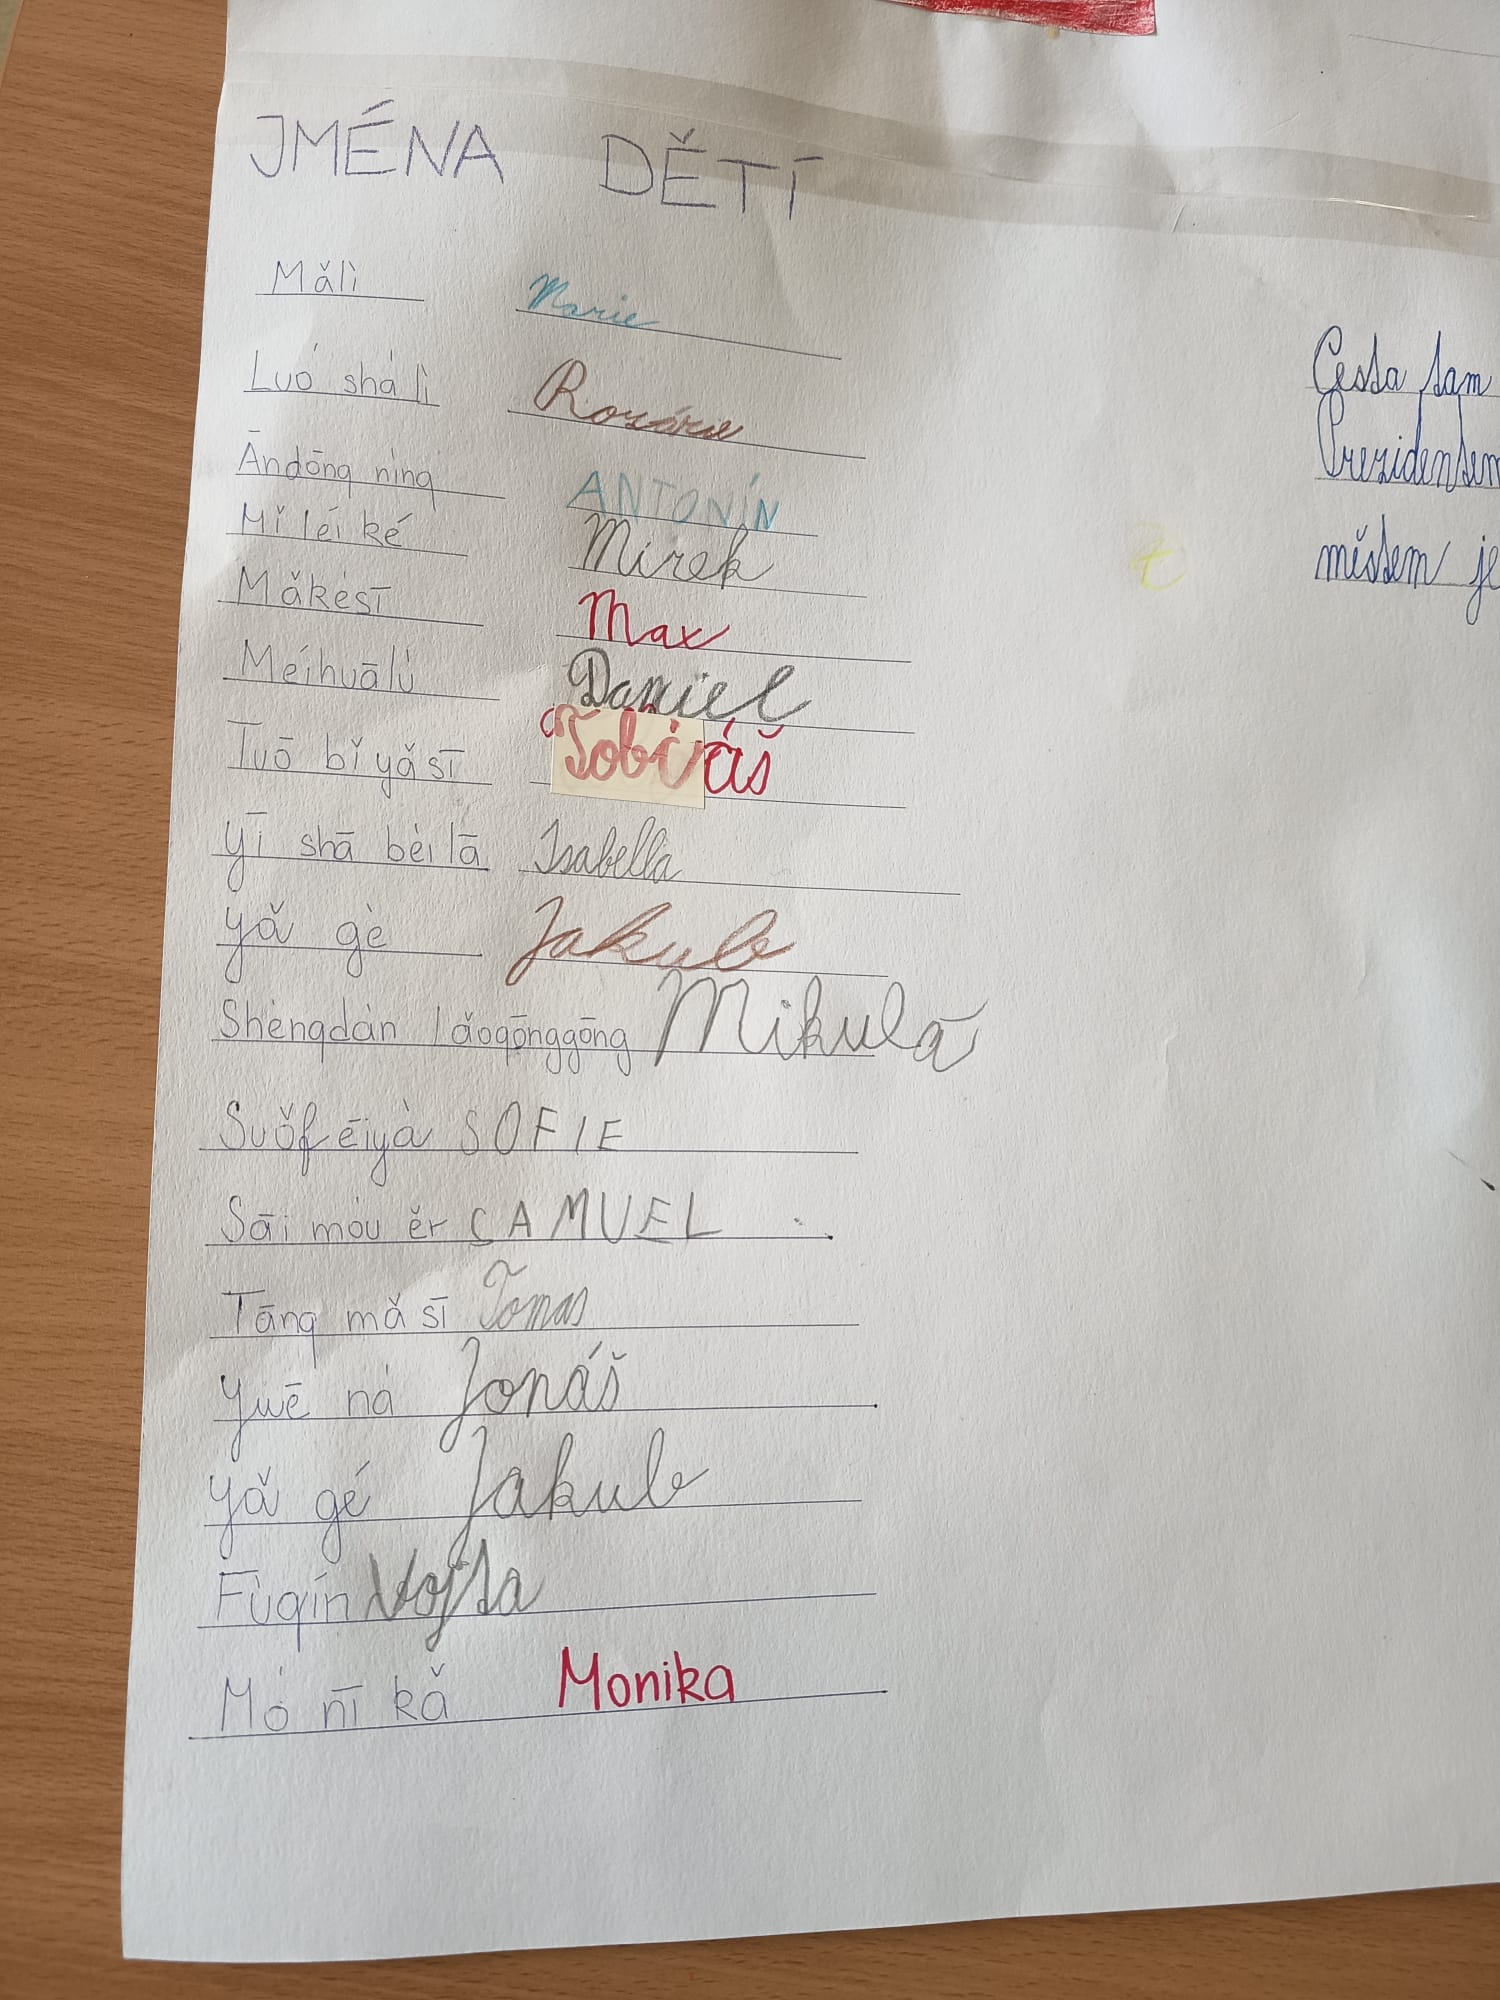 JMÉNA DĚTÍ
Mǎlì Marie
Luó shā lì Rozárie
Āndōng níng ANTONÍN
Mǐ léi ké Mirek
Mǎkèsī Max
Méihuālù Daniel
Tuō bǐ yǎ sī Tobiáš
Yī shā bèi lā Isabella
Yǎ gè Jakub
Shèngdàn lǎogōnggōng Mikulá
Suǒfēiyà SOFIE
Sāi móu ěr SAMUEL
Tāng mǎ sī Tomas
Ywē ná Jonáš
Yǎ gé Jakub
Fùqín Vojta
Mò nī kǎ Monika
Cesta tam
Prezidentem
městem je